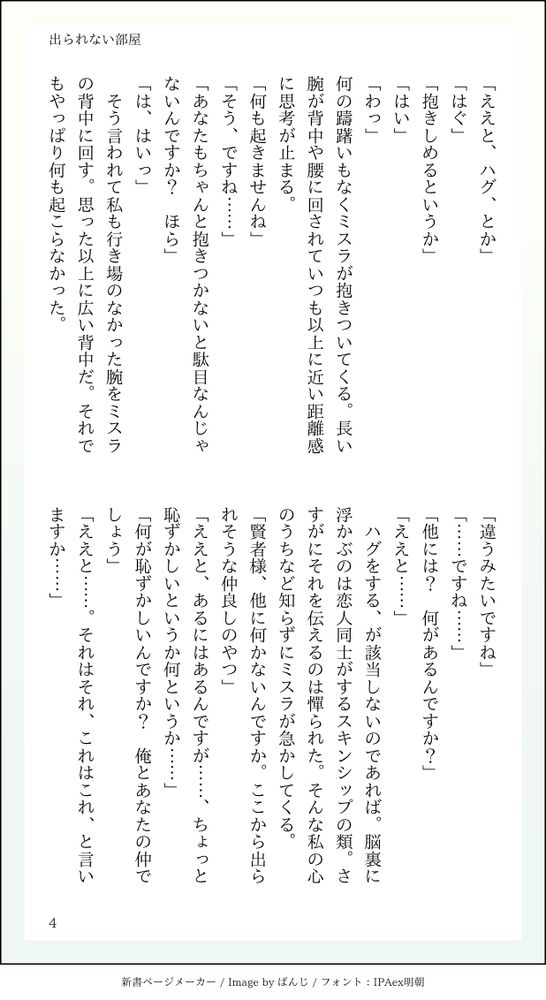 出られない部屋
「ええと、ハグ、とか」
「はぐ」
「抱きしめるというか」
「はい」
「わっ」
何の躊躇いもなくミスラが抱きついてくる。長い
腕が背中や腰に回されていつも以上に近い距離感
に思考が止まる。
「何も起きませんね」
「そう、ですね……」
「あなたもちゃんと抱きつかないと駄目なんじゃ
ないんですか？　ほら」
「は、はいっ」
　そう言われて私も行き場のなかった腕をミスラ
の背中に回す。思った以上に広い背中だ。それで
もやっぱり何も起こらなかった。
「違うみたいですね」
「……ですね……」
「他には？　何があるんですか？」
「ええと……」
　ハグをする、が該当しないのであれば。脳裏に
浮かぶのは恋人同士がするスキンシップの類。さ
すがにそれを伝えるのは憚られた。そんな私の心
のうちなど知らずにミスラが急かしてくる。
「賢者様、他に何かないんですか。ここから出ら
れそうな仲良しのやつ」
「ええと、あるにはあるんですが……、ちょっと
恥ずかしいというか何というか……」
「何が恥ずかしいんですか？　俺とあなたの仲で
しょう」
「ええと……。それはそれ、これはこれ、と言い
ますか……」
4
新書ページメーカー / Image by ぱんじ / フォント：IPAex明朝